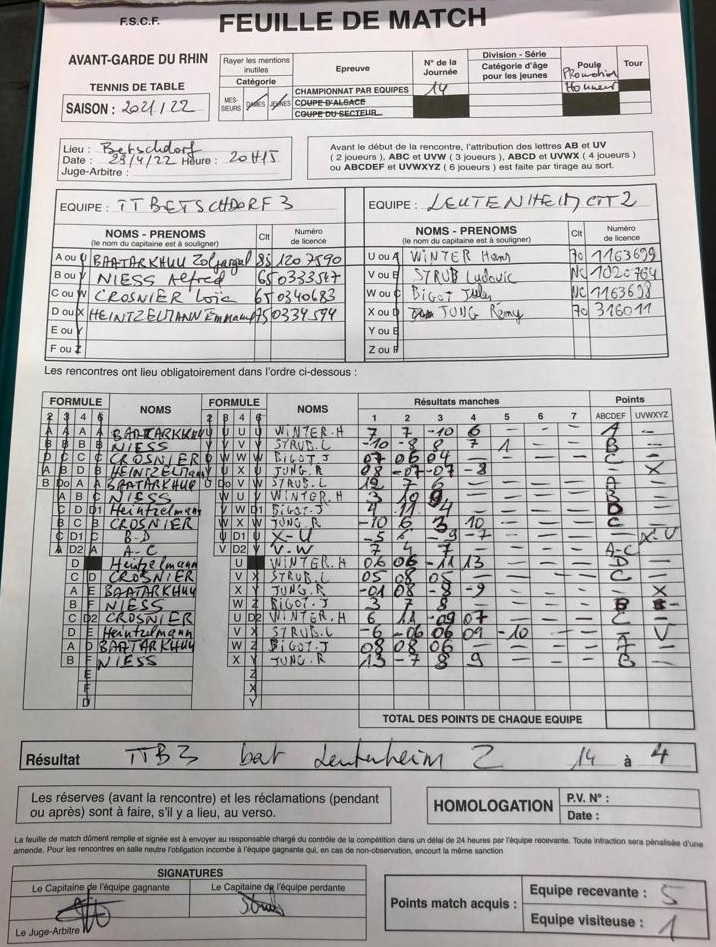 F.S.C.F.
FEUILLE DE MATCH
AVANT-GARDE DU RHIN
TENNIS DE TABLE
SAISON : 2021/22
Rayer les mentions inutiles
Catégorie
MESSIEURS DAMES JEUNES
Epreuve
CHAMPIONNAT PAR EQUIPES
COUPE D'ALSACE
COUPE DU SECTEUR
N° de la Journée
14
Division - Série
Catégorie d'âge
pour les jeunes
Poule
Promotion
Honneur
Tour
Lieu : Betschdorf
Date : 23/4/22 Heure : 20H15
Juge-Arbitre :
Avant le début de la rencontre, l'attribution des lettres AB et UV
( 2 joueurs ), ABC et UVW ( 3 joueurs ), ABCD et UVWX ( 4 joueurs )
ou ABCDEF et UVWXYZ ( 6 joueurs ) est faite par tirage au sort.
EQUIPE : TTBETSCHDORF 3
NOMS - PRENOMS
(le nom du capitaine est à souligner)
Clt
Numéro de licence
A ou U BAATARKHUU Zoljargal 85 1207590
B ou V NIESS Alfred 65 0333547
C ou W CROSNIER Loïc 65 0340683
D ou X HEINTZELMANN Emmanu 75 0334594
E ou Y
F ou Z
EQUIPE : LEUTENHEIM CTT 2
NOMS - PRENOMS
(le nom du capitaine est à souligner)
Clt
Numéro de licence
U ou A WINTER Hans 70 1163699
V ou B STRUB Ludovic NC 1020764
W ou C BIGOT Jules NC 1163698
X ou D JUNG Rémy 70 316011
Y ou E
Z ou F
Les rencontres ont lieu obligatoirement dans l'ordre ci-dessous :
FORMULE NOMS FORMULE NOMS Résultats manches Points
2 3 4 6 2 3 4 6 1 2 3 4 5 6 7 ABCDEF UVWXYZ
BAATARKHUU WINTER.H 7 7 -10 6 — — — A —
NIESS STRUB.L -10 -8 8 7 1 — — B —
CROSNIER BIGOT J 07 06 04 — — — — C —
HEINTZELMANN JUNG.R 08 -07 -07 -8 — — — — X
BAATARKHUU STRUB.L 12 7 6 — — — — A —
NIESS WINTER.H 3 10 9 — — — — B —
Heintzelmann BIGOT.J 4 11 4 — — — — D —
CROSNIER JUNG.R -10 6 3 10 — — — C —
B-D X-U -5 6 -9 -7 — — — — X-U
A-C V-W 7 4 7 — — — — A-C —
Heintzelmann WINTER.H 06 06 -11 13 — — — D —
CROSNIER STRUB.L 05 08 05 — — — — C —
BAATARKHUU JUNG.R -01 08 -8 -9 — — — — X
NIESS BIGOT.J 3 7 8 — — — — B
CROSNIER WINTER.H 6 11 -09 07 — — — C —
Heintzelmann STRUB.L -6 -06 06 09 -10 — — — V
BAATARKHUU BIGOT.J 08 08 06 — — — — A —
NIESS JUNG.R 13 -7 8 9 — — — B —
TOTAL DES POINTS DE CHAQUE EQUIPE
Résultat TTB3 bat Leutenheim 2 14 à 4
Les réserves (avant la rencontre) et les réclamations (pendant
ou après) sont à faire, s'il y a lieu, au verso.
HOMOLOGATION
P.V. N° :
Date :
La feuille de match dûment remplie et signée est à envoyer au responsable chargé du contrôle de la compétition dans un délai de 24 heures par l'équipe recevante. Toute infraction sera pénalisée d'une
amende. Pour les rencontres en salle neutre l'obligation incombe à l'équipe gagnante qui, en cas de non-observation, encourt la même sanction
SIGNATURES
Le Capitaine de l'équipe gagnante
Le Capitaine de l'équipe perdante
Le Juge-Arbitre
Points match acquis :
Equipe recevante : 5
Equipe visiteuse : 1